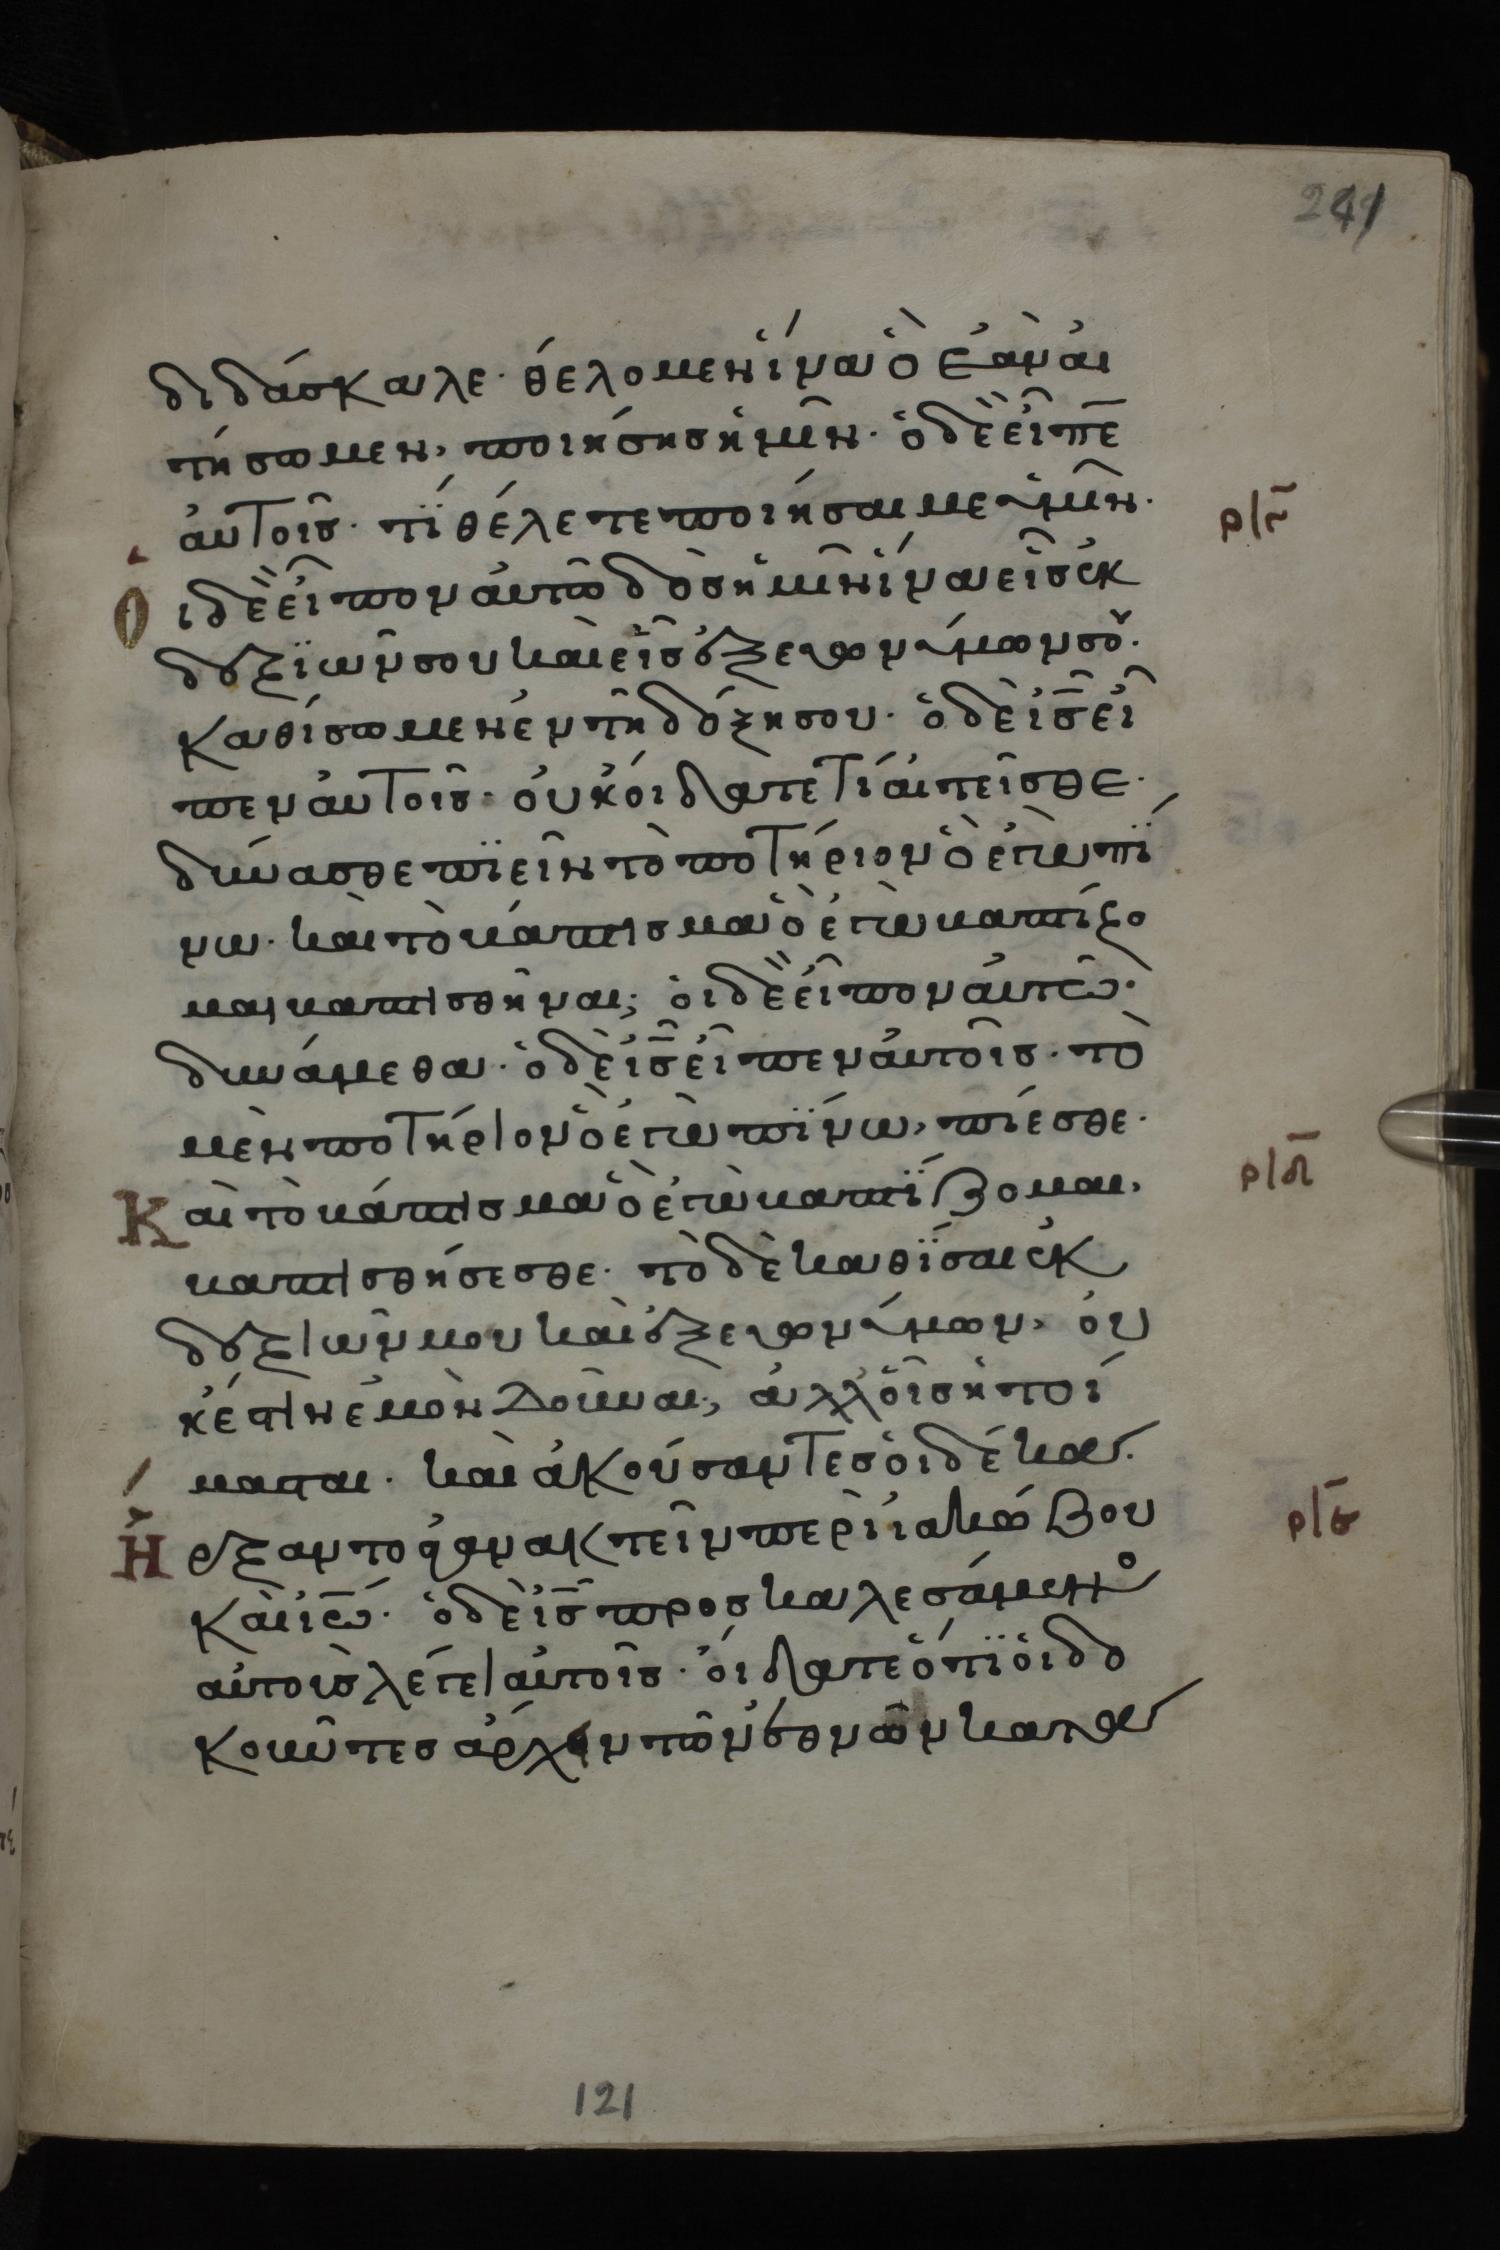 241
διδάσκαλε· θέλομεν ἵνα ὃ ἐὰν αἰ
τήσωμεν, ποιήσης ἡμῖν· ὁ δὲ εἶπε
ἀυτοῖς· τί θέλετε ποιῆσαι με ὑμῖν· ρ|γ
Οἱ δὲ εἶπον ἀυτῶ δὸς ἡμῖν ἵνα εἷς ἐκ
δεξϊῶν σου καὶ εἷς ἐξ ευωνύμων σου·
καθίσωμεν ἐν τῆ δόξη σου· ὁ δὲ ι̅ς̅ εἶ
πεν ἀυτοῖς· ὀυκ ὀίδατε τί ἀιτεῖσθε·
δύνασθε πϊεῖν τὸ ποτήριον ὃ ἐγὼ πί
νω· καὶ τὸ βάπτισμα ὃ ἐγὼ βαπτίζο
μαι βαπτισθῆναι; ὁι δὲ εἶπον ἀυτῶ·
δυνάμεθα· ὁ δὲ ι̅ς̅ εἶπεν ἀυτοῖς· τὸ
μὲν ποτήριον ὃ ἐγὼ πίνω, πίεσθε·
Καὶ τὸ βάπτισμα ὃ ἐγὼ βαπτίζομαι, ρ|δ
βαπτισθήσεσθε· τὸ δὲ καθΐσαι ἐκ
δεξιῶν μου καὶ ἐξ ευωνύμων, ὀυ
κ ἔστιν ἐμὸν δοῦναι, ἀλλ ὁῖς ἡτοί
μασται· καὶ ἀκούσαντες ὁι δέκα·
Ἤρξαντο ἀγανακτεῖν περὶ ιακώβου ρ|ε
καὶ ιω̅· ὁ δὲ ι̅ς̅ προσκαλεσάμενος
αὐτοὺς λέγει αὐτοῖς· ὀίδατε ὅτι ὁι δο
κοῦντες ἄρχειν τῶν ἐθνῶν κατα
121